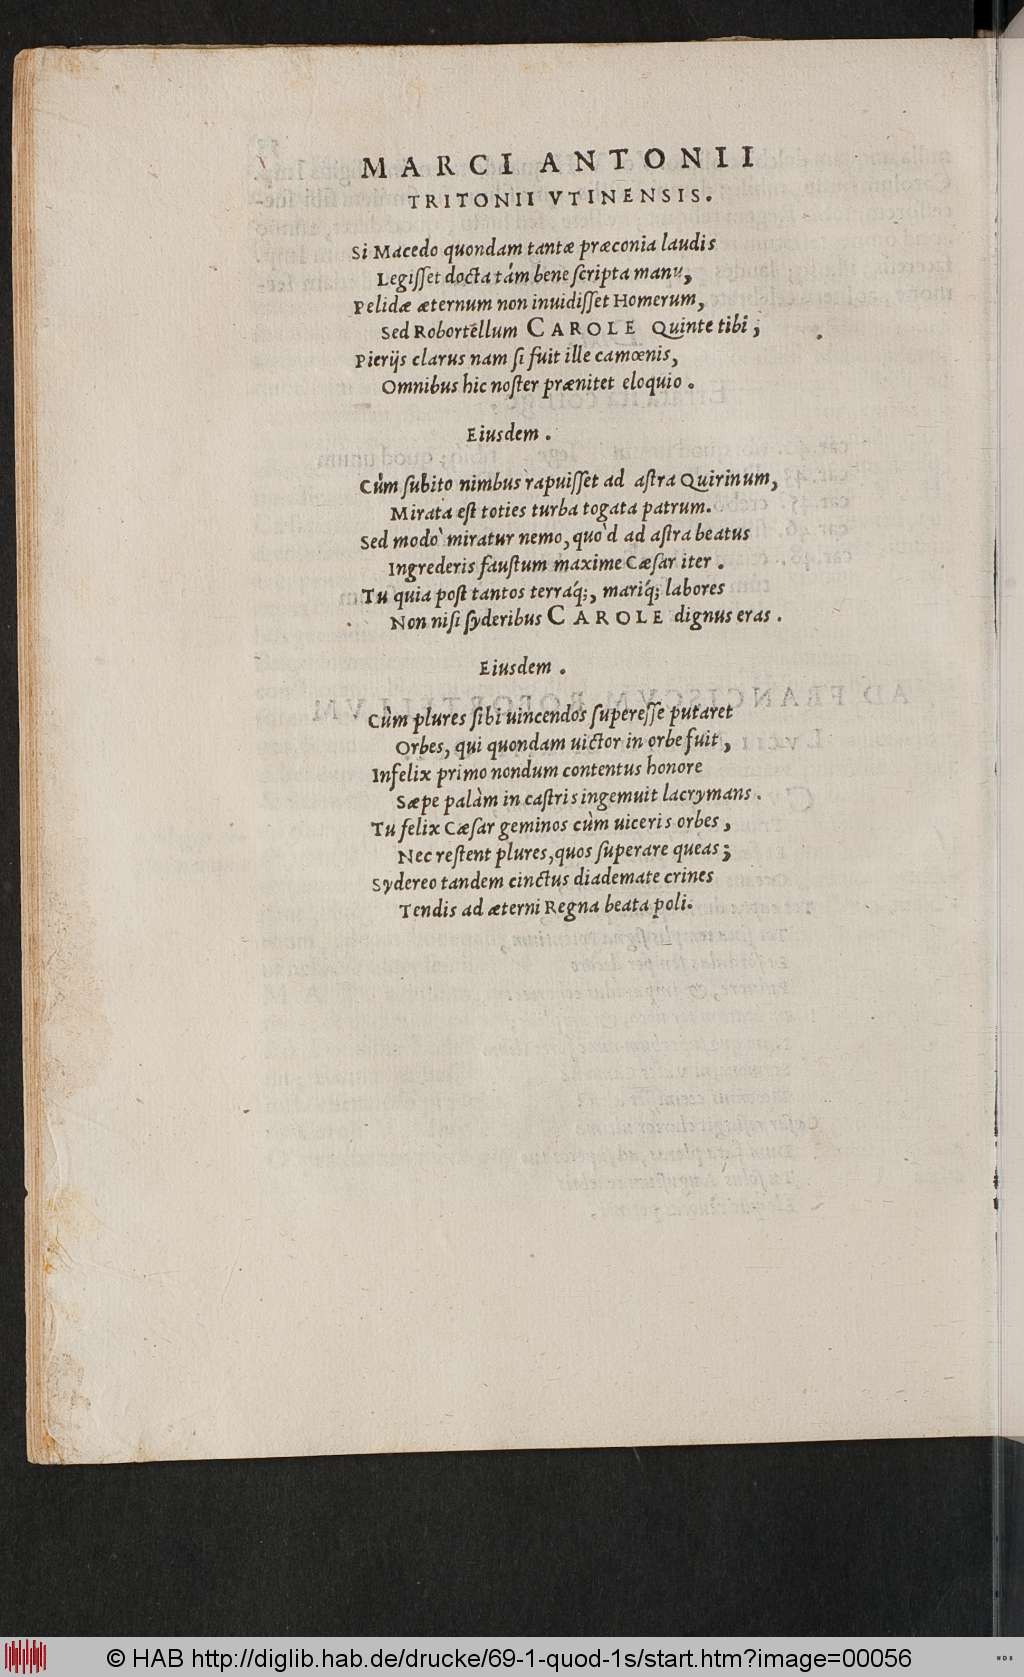 MARCI ANTONII
TRITONII VTINENSIS.
Si Macedo quondam tantæ præconia laudis
Legiſſet docta tám bene ſcripta manu,
Pelidæ æternum non inuidiſſet Homerum,
Sed Robortellum CAROLE Quinte tibi;
Pierijs clarus nam ſi fuit ille camœnis,
Omnibus hic noſter prænitet eloquio.
Eiusdem.
Cùm ſubito nimbus rapuiſſet ad aſtra Quirinum,
Mirata eſt toties turba togata patrum.
Sed modò miratur nemo, quòd ad aſtra beatus
Ingrederis fauſtum maxime Cæſar iter.
Tu quia poſt tantos terraq́;, mariq́; labores
Non niſi ſyderibus CAROLE dignus eras.
Eiusdem.
Cùm plures ſibi uincendos ſupereſſe putaret
Orbes, qui quondam uictor in orbe fuit,
Infelix primo nondum contentus honore
Sæpe palàm in caſtris ingemuit lacrymans.
Tu felix Cæſar geminos cùm uiceris orbes,
Nec reſtent plures, quos ſuperare queas;
Sydereo tandem cinctus diademate crines
Tendis ad æterni Regna beata poli.
© HAB http://diglib.hab.de/drucke/69-1-quod-1s/start.htm?image=00056